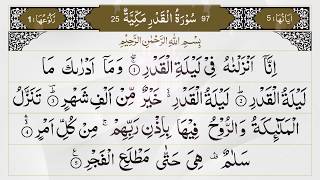 اٰیَاتُهَا: 5 97 سُوْرَةُ الْقَدْرِ مَكِّيَّةٌ 25 رُكُوْعُهَا: 1
بِسْمِ اللّٰهِ الرَّحْمٰنِ الرَّحِيْمِ
اِنَّاۤ اَنْزَلْنٰهُ فِیْ لَیْلَةِ الْقَدْرِ ۝۱ وَ مَاۤ اَدْرٰىكَ مَا
لَیْلَةُ الْقَدْرِ ۝۲ لَیْلَةُ الْقَدْرِ خَیْرٌ مِّنْ اَلْفِ شَهْرٍ ۝۳ تَنَزَّلُ
الْمَلٰٓىِٕكَةُ وَ الرُّوْحُ فِیْهَا بِاِذْنِ رَبِّهِمْ مِنْ كُلِّ اَمْرٍ ۝۴
سَلٰمٌ هِیَ حَتّٰى مَطْلَعِ الْفَجْرِ ۝۵